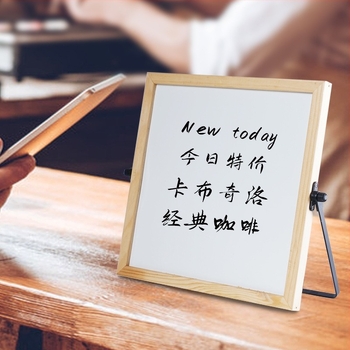 New today
今日特价
卡布奇洛
经典咖啡